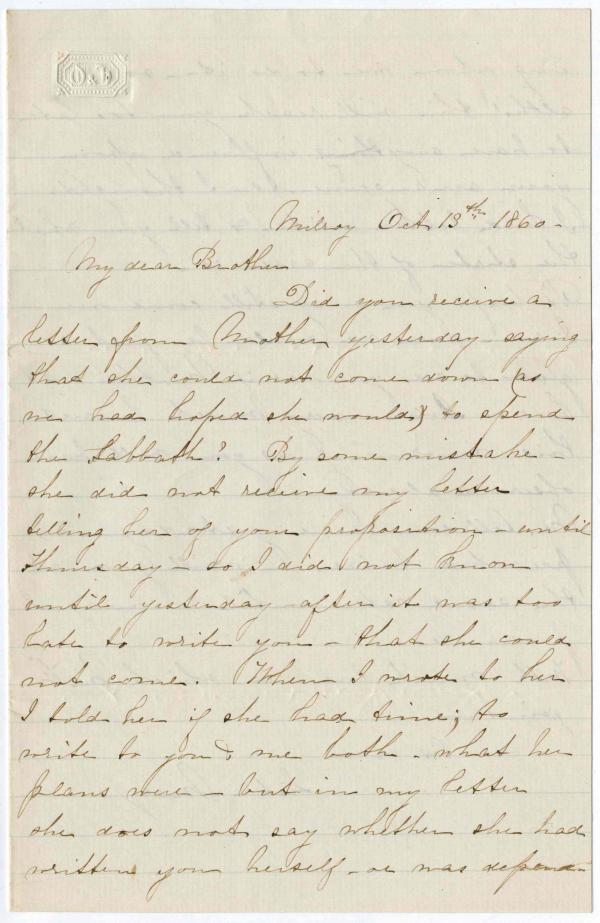 Milroy Oct 13th 1860-
My dear Brother
Did you receive a
letter from Mother yesterday saying
that she could not come down (as
we had hoped she would) to spend
the Sabbath? By some mistake-
she did not receive my letter
telling her of your proposition - until
Thursday - so I did not know
until yesterday after it was too
late to write you - that she could
not come. When I wrote to her
I told her if she had time; to
write to you & me both - what her
plans were - but in my letter
she does not say whether she had
written you herself - or was depend-